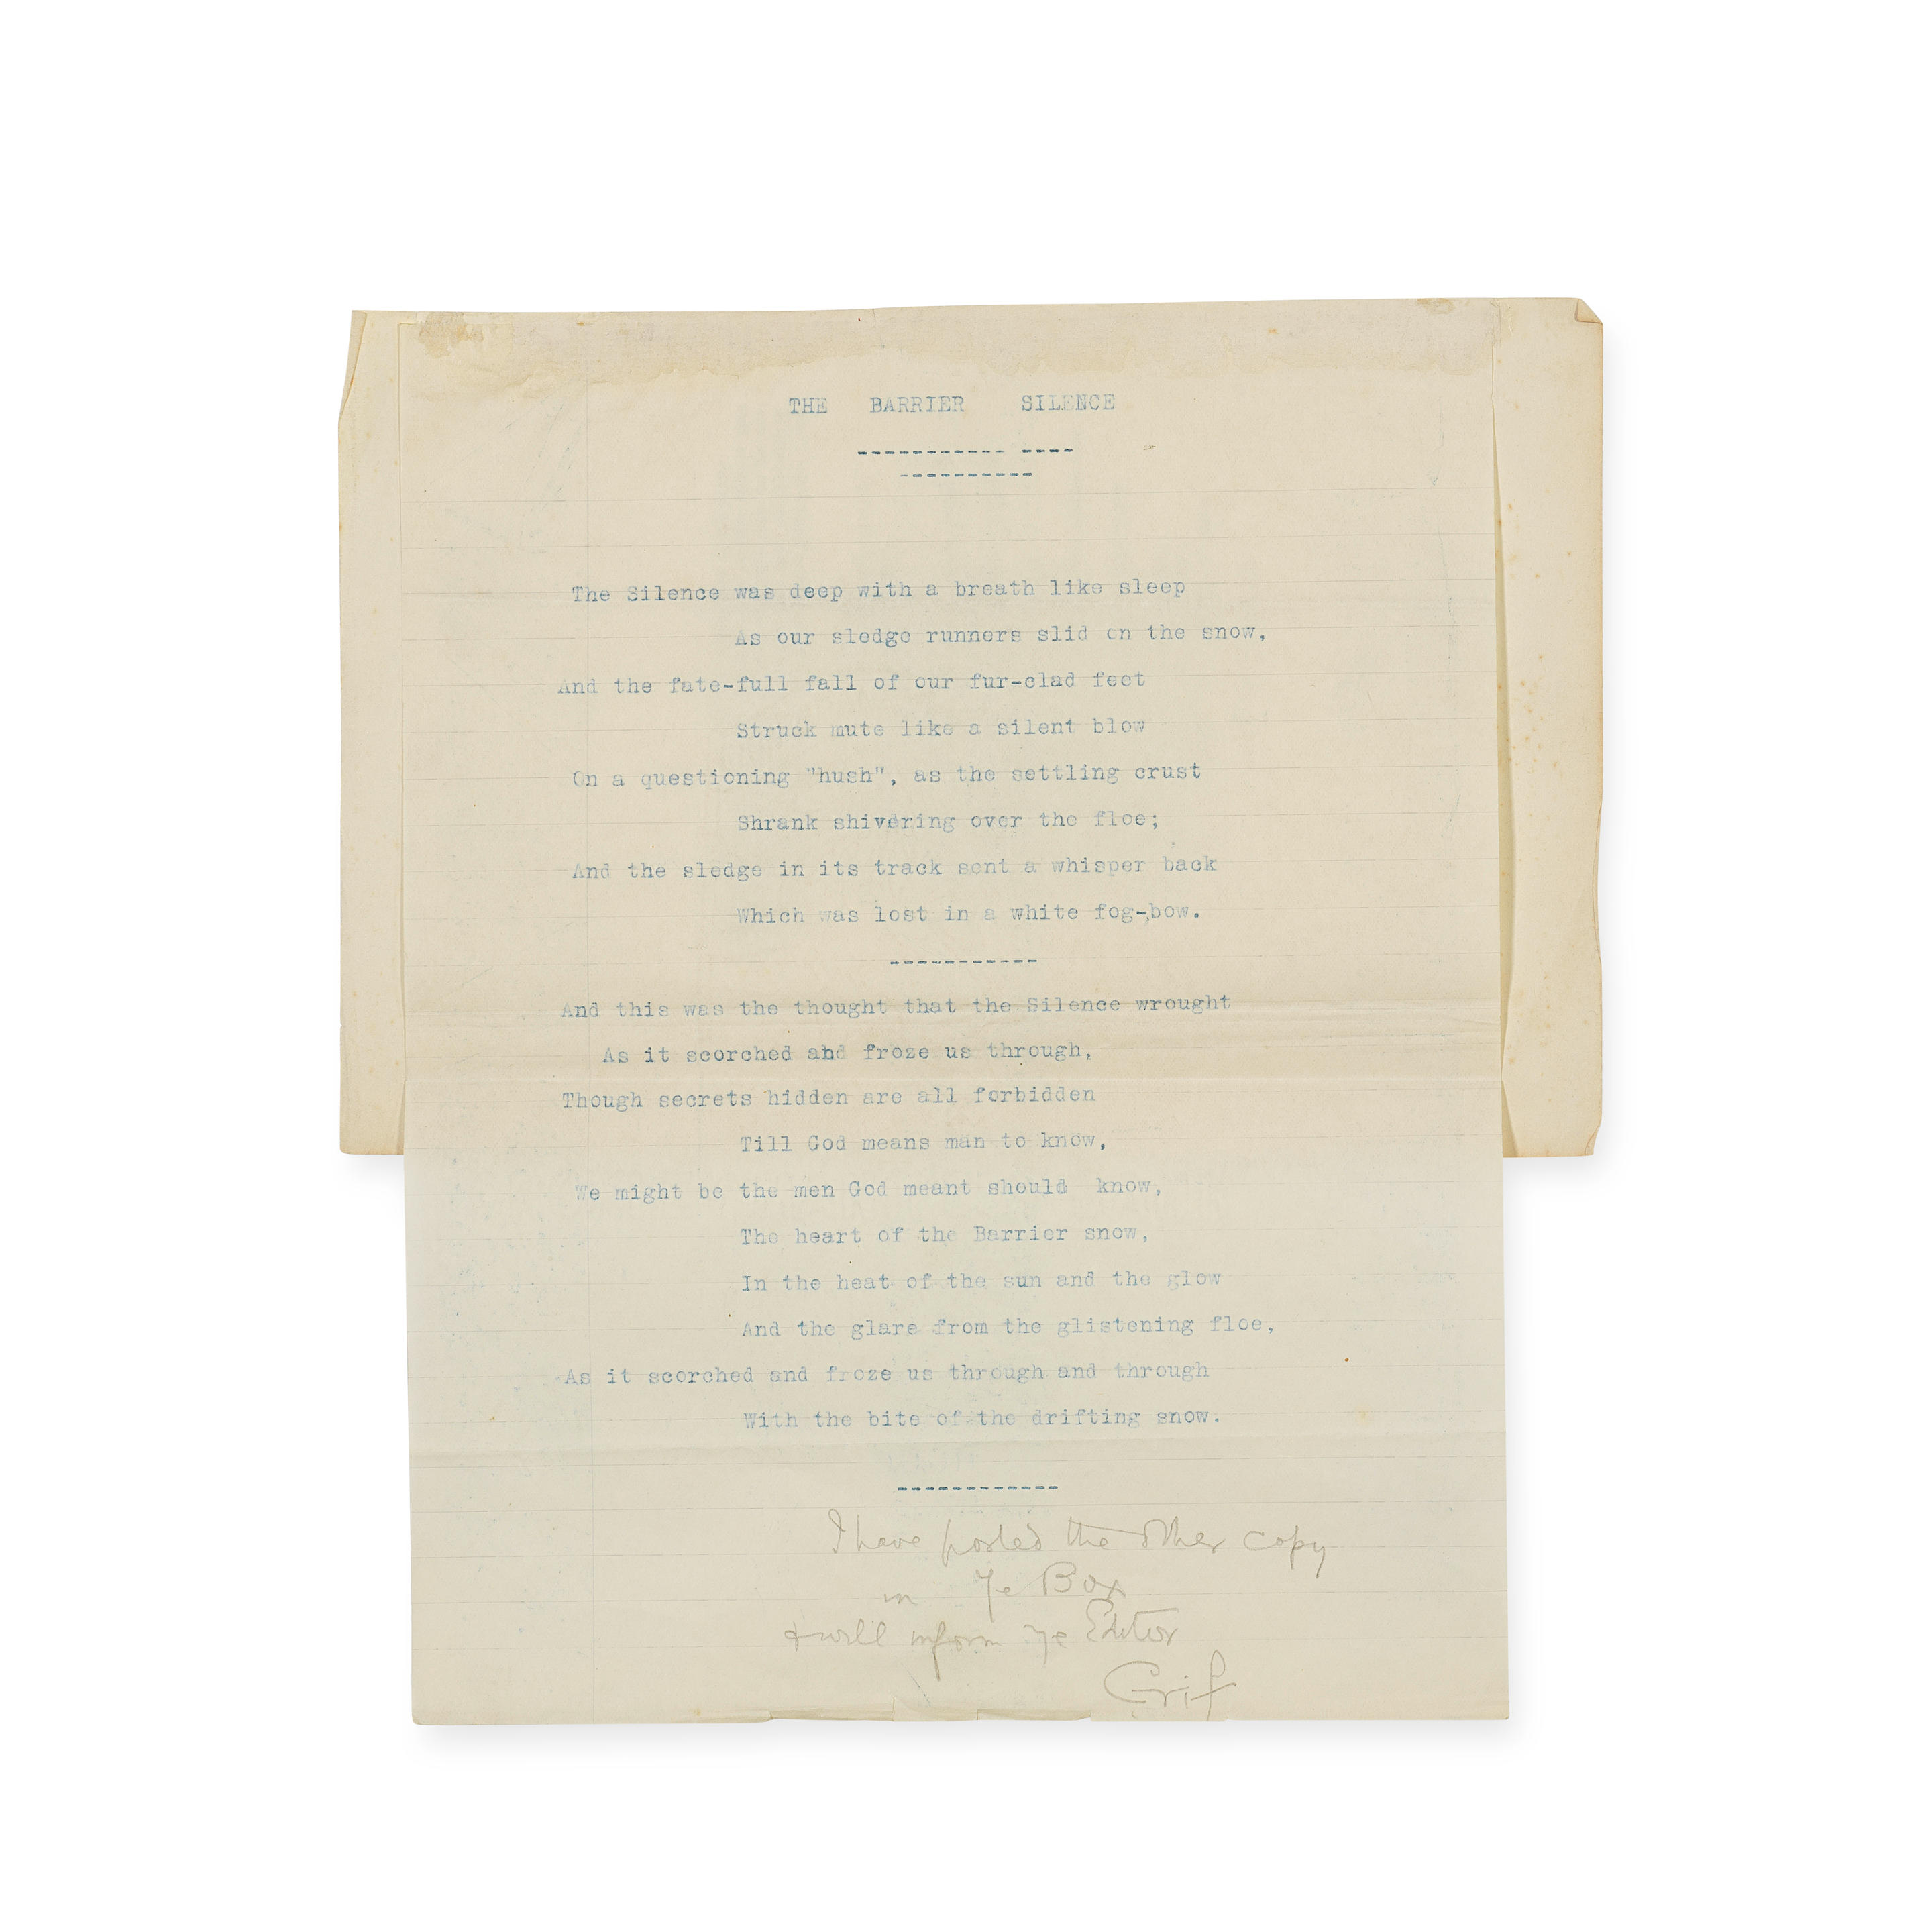 THE BARRIER SILENCE
The Silence was deep with a breath like sleep
As our sledge runners slid on the snow,
And the fate-full fall of our fur-clad feet
Struck mute like a silent blow
On a questioning "hush", as the settling crust
Shrank shivering over the floe;
And the sledge in its track sent a whisper back
Which was lost in a white fog-bow.
-----------
And this was the thought that the Silence wrought
As it scorched and froze us through,
Though secrets hidden are all forbidden
Till God means man to know,
We might be the men God meant should know,
The heart of the Barrier snow,
In the heat of the sun and the glow
And the glare from the glistening floe,
As it scorched and froze us through and through
With the bite of the drifting snow.
------------
I have posted the other copy
in Ye Box
& will inform Ye Editor
Grif